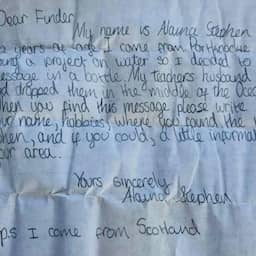 Dear Finder,
My name is Alaina Stephen
years of age I come from Portknockie
a project on water so I decided to
message in a bottle. My teachers husband
dropped them in the middle of the
When you find this message please write
your name, hobbies, where you found the
when, and if you could, a little
your area.
Yours sincerely
Alaina Stephen
P.S I come from Scotland